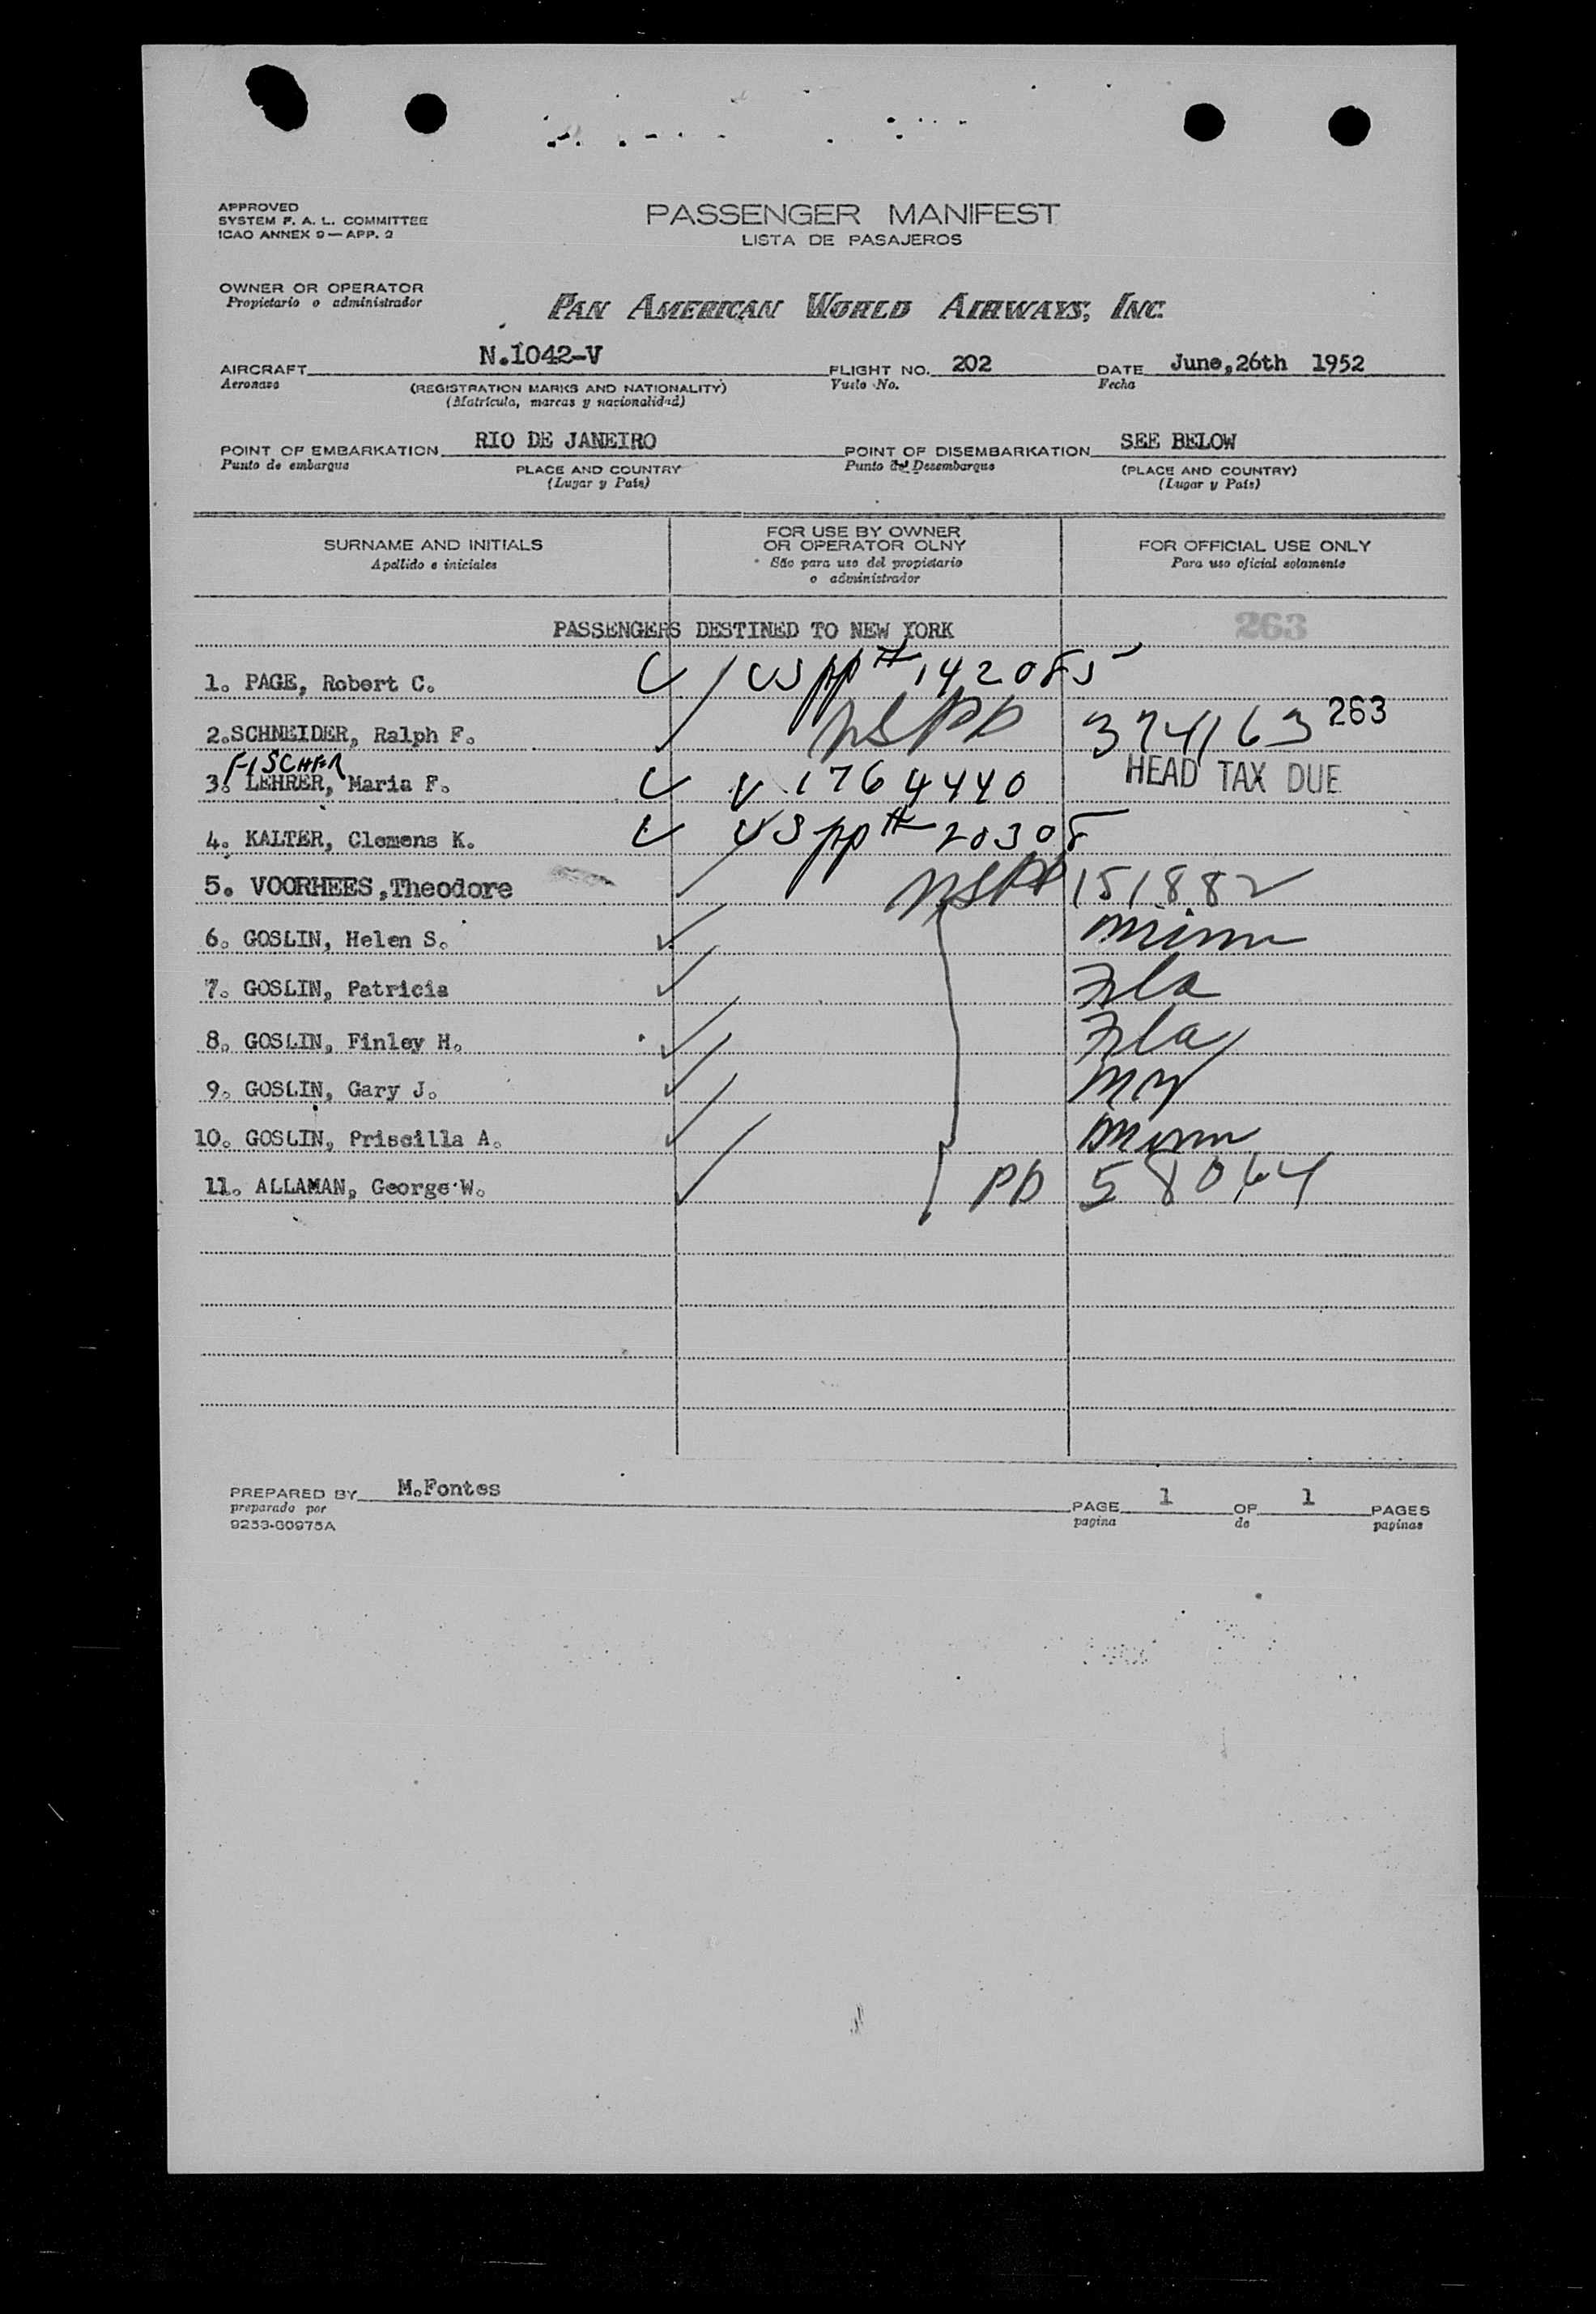 APPROVED
SYSTEM F. A. L. COMMITTEE
ICAO ANNEX 9 — APP. 2
PASSENGER MANIFEST
LISTA DE PASAJEROS
OWNER OR OPERATOR
Propietario o administrador
PAN AMERICAN WORLD AIRWAYS, INC.
AIRCRAFT N.1042-V FLIGHT NO. 202 DATE June,26th 1952
Aeronave (REGISTRATION MARKS AND NATIONALITY) Vuelo No. Fecha
(Matrícula, marcas y nacionalidad)
POINT OF EMBARKATION RIO DE JANEIRO POINT OF DISEMBARKATION SEE BELOW
Punto de embarque PLACE AND COUNTRY Punto de Desembarque (PLACE AND COUNTRY)
(Lugar y País) (Lugar y País)
SURNAME AND INITIALS
Apellido e iniciales
FOR USE BY OWNER
OR OPERATOR OLNY
São para uso del propietario
o administrador
FOR OFFICIAL USE ONLY
Para uso oficial solamente
PASSENGERS DESTINED TO NEW YORK 263
1. PAGE, Robert C. US pp # 142085
2. SCHNEIDER, Ralph F. USPP 374163 263
FISCHER
3. LEHRER, Maria F. V 1764440 HEAD TAX DUE
4. KALTER, Clemens K. US pp # 20308
5. VOORHEES, Theodore USPP 151882
6. GOSLIN, Helen S. Minn
7. GOSLIN, Patricia Fla
8. GOSLIN, Finley H. Fla
9. GOSLIN, Gary J. NY
10. GOSLIN, Priscilla A. Minn
11. ALLAMAN, George W. PP 58064
PREPARED BY M.Fontes PAGE 1 OF 1 PAGES
preparado por pagina de paginas
9253-G0975A